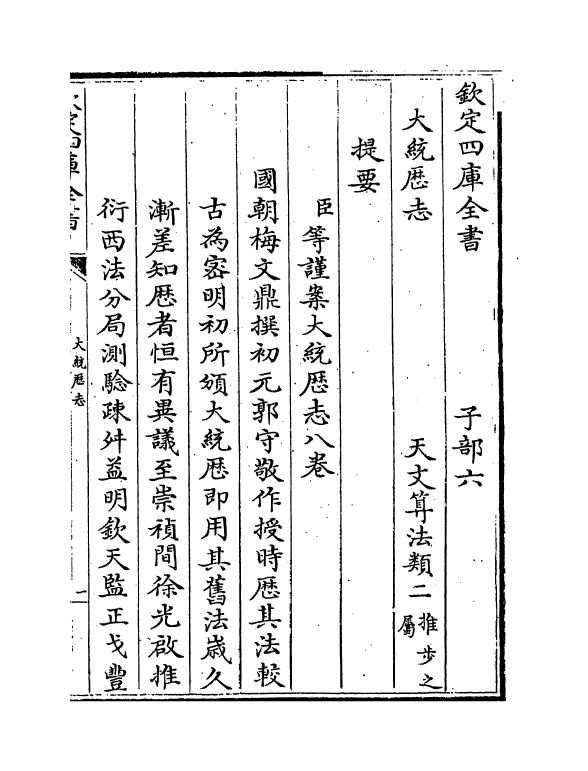 欽定四庫全書　子部六
大統厯志　天文算法類二推步之屬
提要
臣等謹案大統厯志八卷
國朝梅文鼎撰初元郭守敬作授時厯其法較
古為密明初所頒大統厯即用其舊法嵗久
漸差知厯者恒有異議至崇禎間徐光啟推
衍西法分局測驗疎舛益明欽天監正戈豐
欽定四庫全書
大統厯志
一